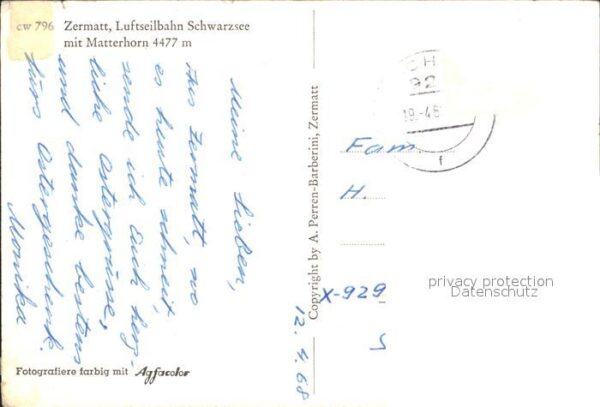 cw 796 Zermatt, Luftseilbahn Schwarzsee
mit Matterhorn 4477 m
Meine Lieben,
Aus Zermatt, wo
es heute schneit,
sende ich Euch herz-
liche Ostergrüsse,
und danke bestens
fürs Ostergeschenk.
Monika
12.4.68
Fotografiere farbig mit Agfacolor
Copyright by A. Perren-Barberini, Zermatt
Fam.
H.
X-929
privacy protection
Datenschutz